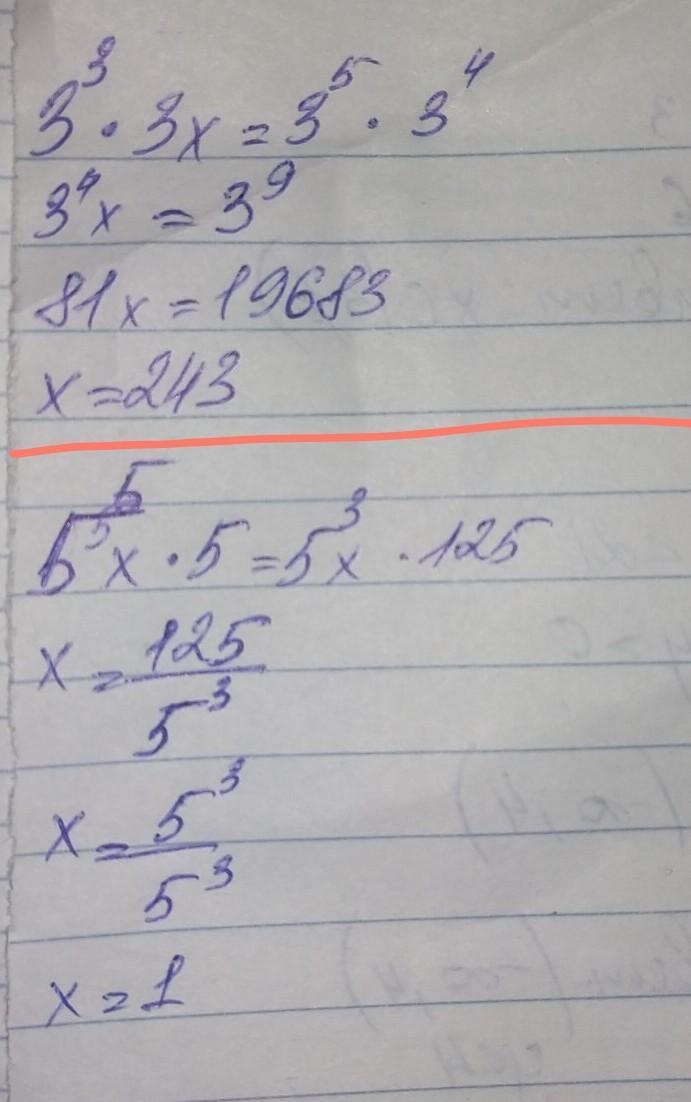 3³ · 3x = 3⁵ · 3⁴
3⁴x = 3⁹
81x = 19683
x = 243
5³x · 5 = 5³x · 125
x = 125/5³
x = 5³/5³
x = 1